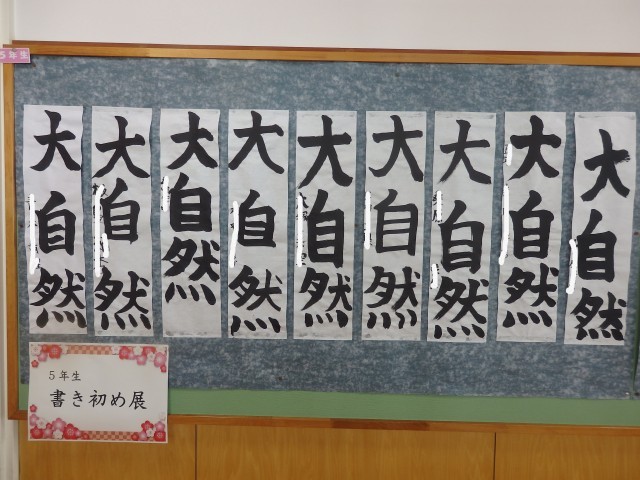 5年生
大自然
大自然
大自然
大自然
大自然
大自然
大自然
大自然
大自然
5年生
書き初め展